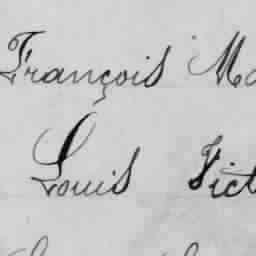 François Ma
Louis Vict